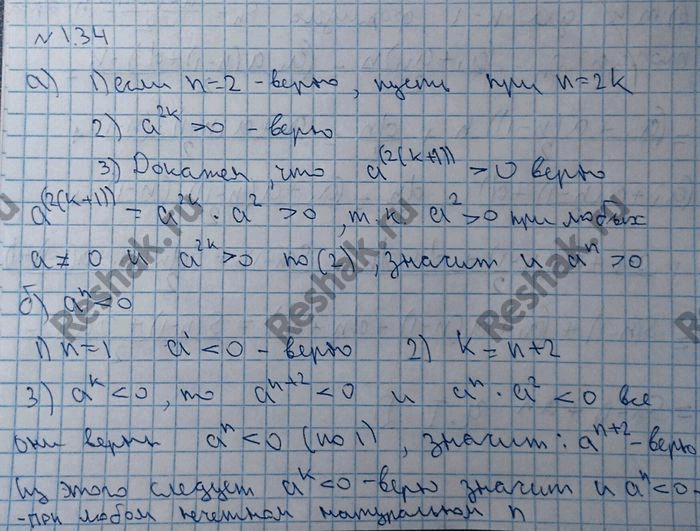 №1.34
а) 1) если n=2 - верно, пусть при n=2k
2) a^{2k} >0 - верно
3) Докажем, что a^{(2(k+1))} >0 верно
a^{(2(k+1))} = a^{2k} · a^2 >0, т.к. a^2>0 при любых
a≠0 и a^{2k}>0 по (2), значит и a^n >0
б) a^n<0
1) n=1 a^1<0 - верно 2) k=n+2
3) a^k<0, то a^{n+2}<0 и a^n · a^2 <0 все
они верны a^n<0 (по 1), значит: a^{n+2} - верно
из этого следует a^k<0 - верно значит и a^n<0 -
- при любом нечетном натуральном n
Reshak.ru
Reshak.ru
Reshak.ru